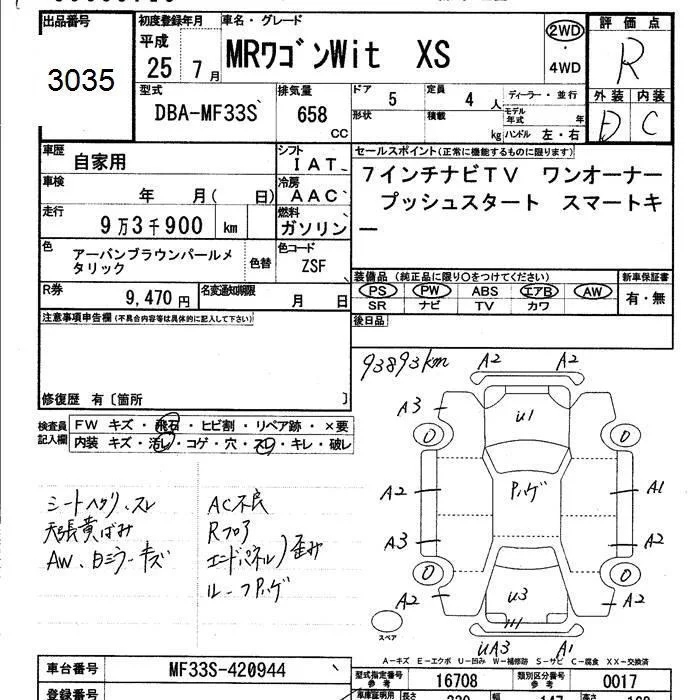 出品番号
3035
初度登録年月
平成
25年 7月
車名・グレード
MRワゴンWit XS
2WD
・
4WD
評価点
R
外装 内装
D C
型式
DBA-MF33S
排気量
658
CC
ドア
5
定員
4 人
ディーラー・並行
モデル年式 年
形状
積載
kg
ハンドル 左・右
車歴
自家用
シフト
IAT
車検
年 月( 日)
冷房
AAC
走行
9万3千900 km
燃料
ガソリン
色
アーバンブラウンパールメ
タリック
色替
色コード
ZSF
R券
9,470円
名変通知期限
月 日
セールスポイント(正常に機能するものに限ります)
7インチナビTV ワンオーナー
プッシュスタート スマートキ
ー
装備品 (純正品に限り○をつけてください)
PS PW ABS エアB AW
SR ナビ TV カワ
新車保証書
有・無
後日品
注意事項申告欄(不具合内容等は具体的に記入して下さい)
修復歴 有〔箇所 〕
検査員
記入欄
FW キズ・飛石・ヒビ割・リペア跡・×要
内装 キズ・汚レ・コゲ・穴・スレ・キレ・破レ
シートヘタリ、スレ
天張黄ばみ
AW、白ミラーキズ
AC不良
Rフロア
エンドパネル 歪み
ルーフPハゲ
93893km
A2 A2
A3
U1
0 0
A2
Pハゲ
A1
A3
A2
0 0
A2
U3
A2
スペア
UA3 A1
A-キズ E-エクボ U-凹み W-補修跡 S-サビ C-腐食 XX-交換済
車台番号
MF33S-420944
型式指定番号
参考
16708
類別区分番号
参考
0017
登録番号
車庫証明用
長さ
幅
高さ